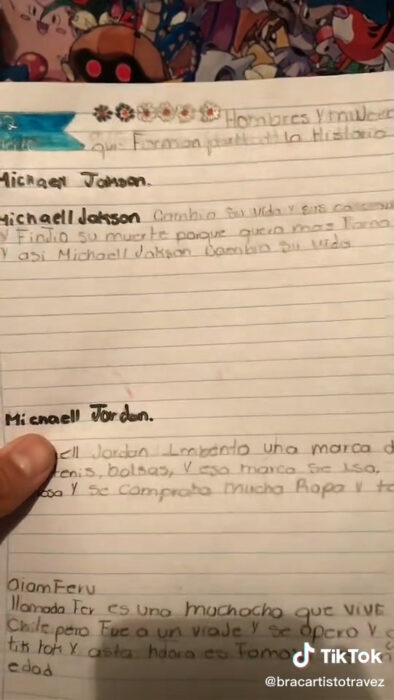 Hombres Y mujeres
que Forman parte de la Historia
Michaell Jakson.
Michaell Jakson Cambio su vida y sus
y Finjio su muerte porque queria mas Fama
Y asi Michaell Jakson Cambio su vida
Michaell Jordan.
ell Jordan Imbento una marca d
enis, bolsas, y esa marca se iso,
osa Y se compraba mucha Ropa y t
OiamFeru
llamada Fer es una muchacho que vive
Chile pero Fue a un viaje y se opero y
tik tok y asta haora es Famos
edad
TikTok
@bracartistotravez